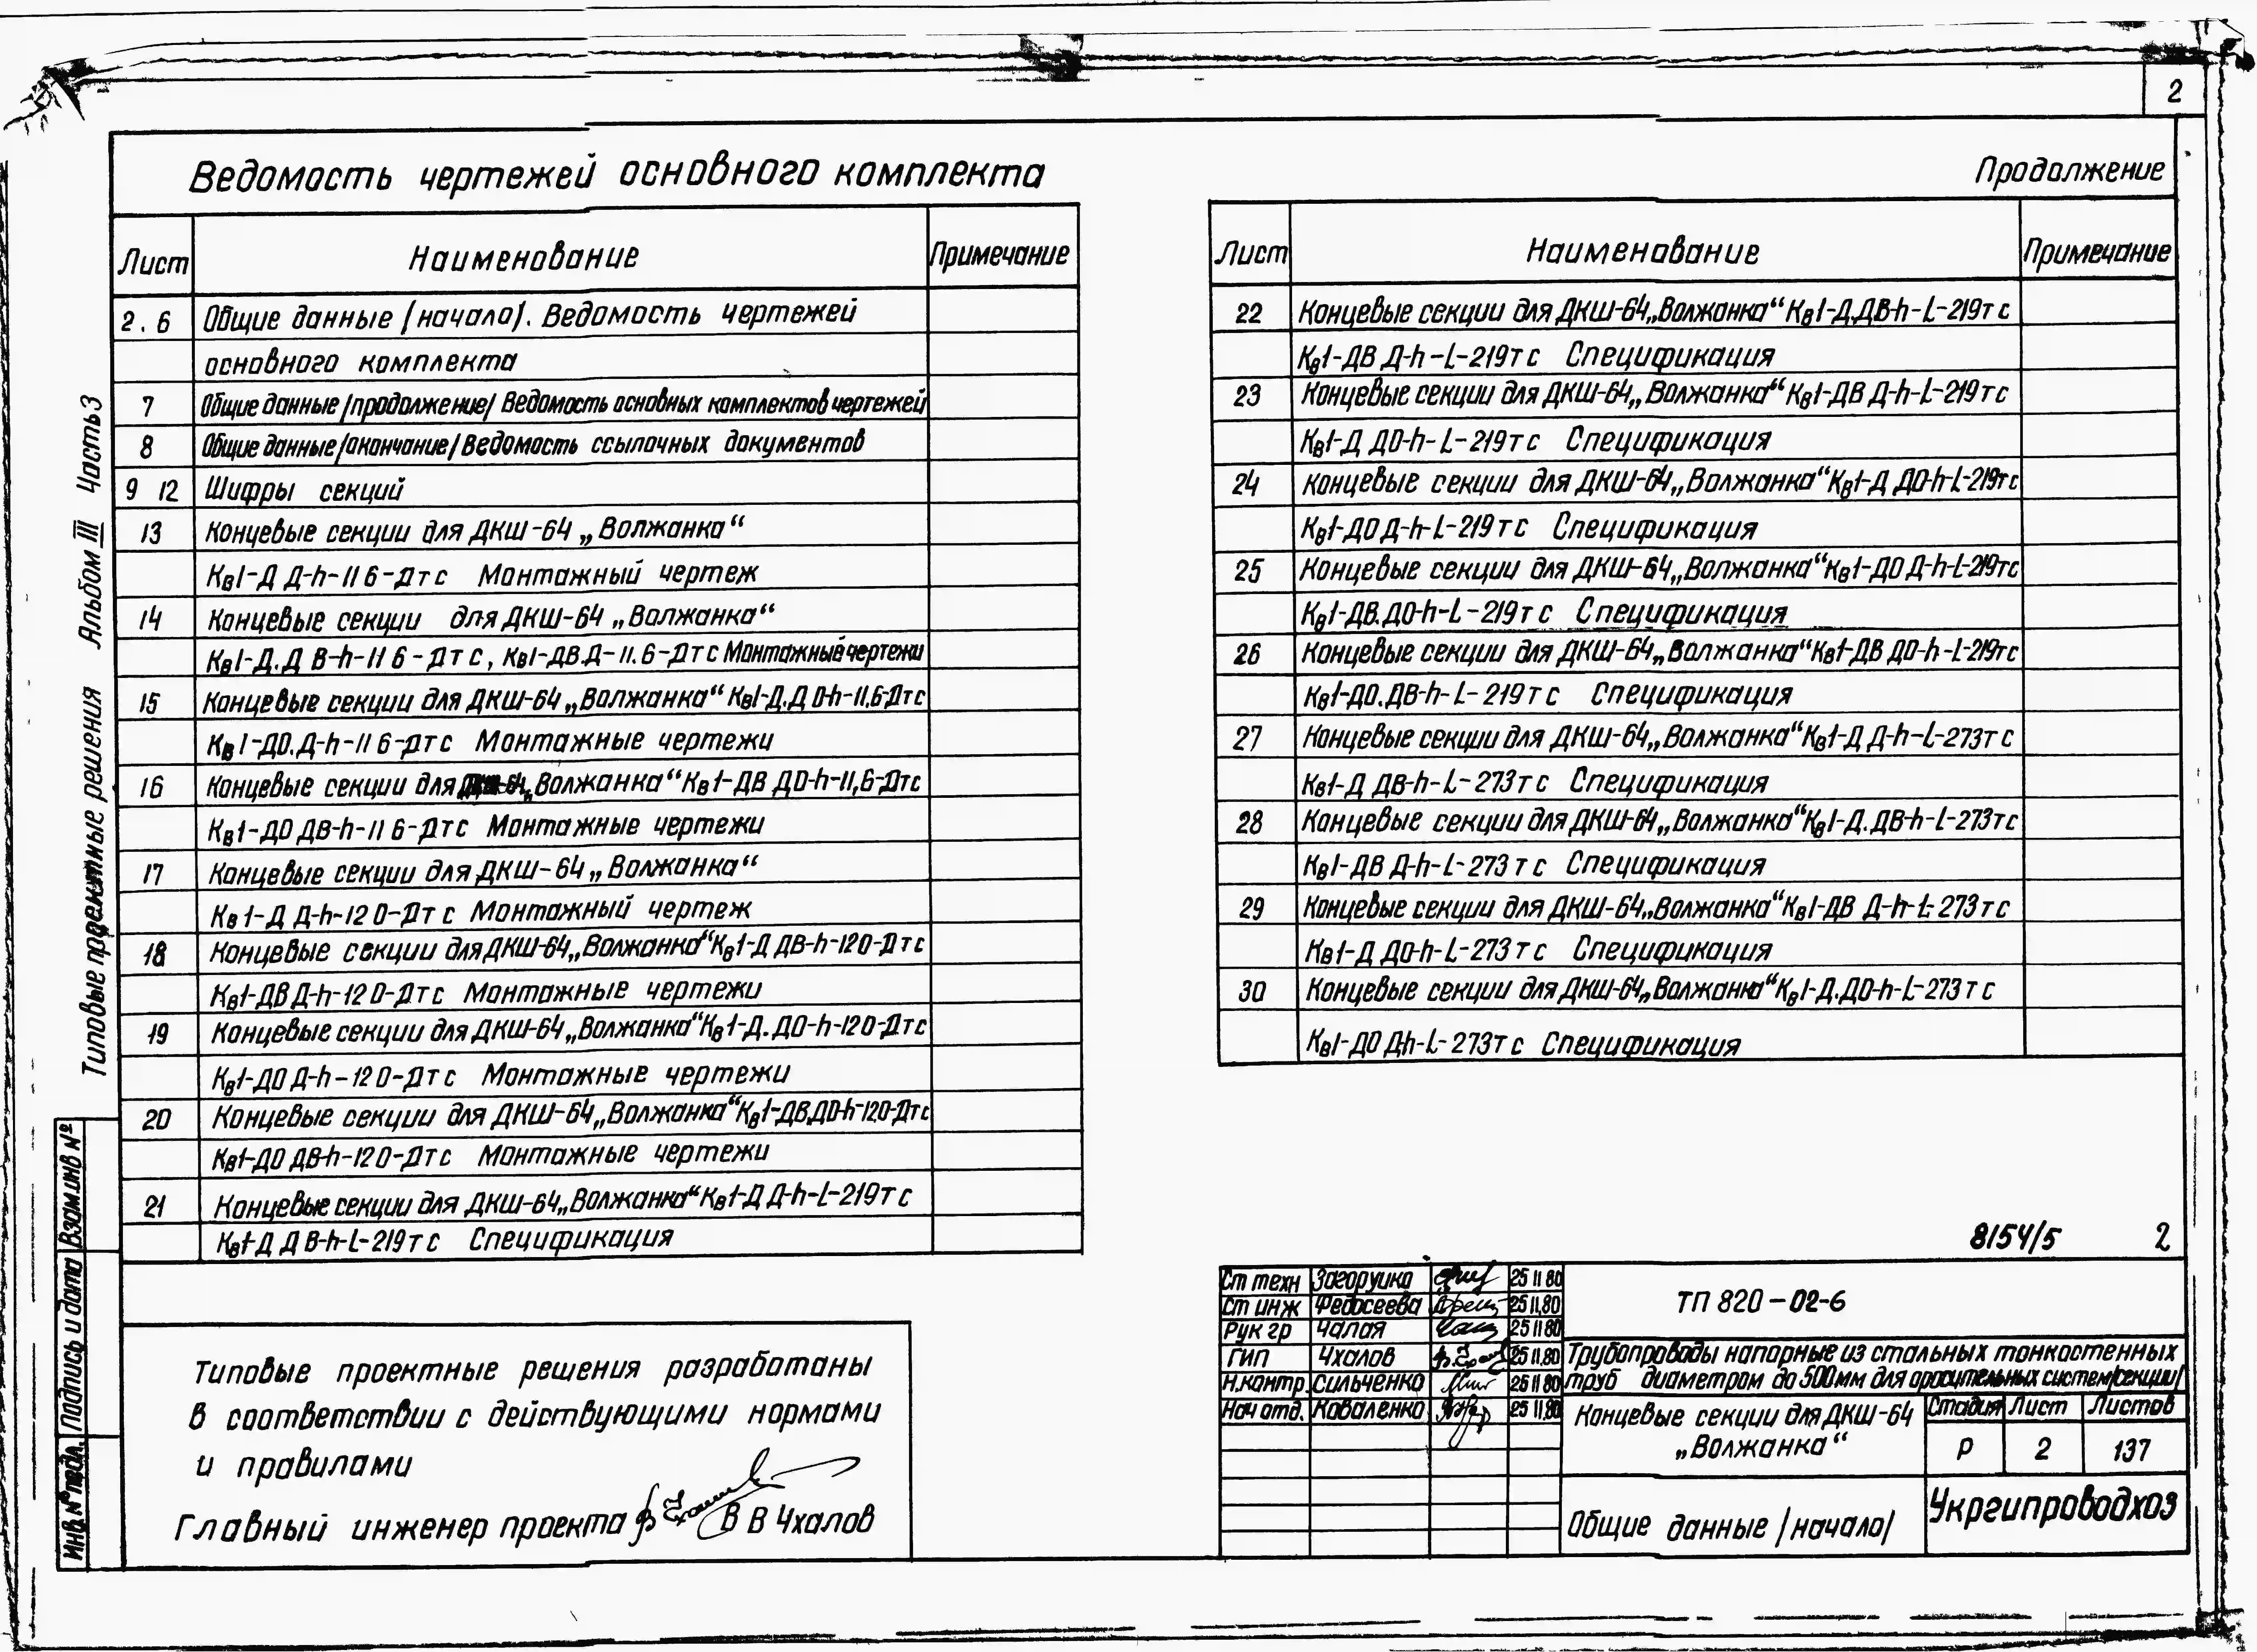 2
Ведомость чертежей основного комплекта
Лист Наименование Примечание
2. 6 Общие данные /начало/. Ведомость чертежей
основного комплекта
7 Общие данные /продолжение/ Ведомость основных комплектов чертежей
8 Общие данные /окончание/ Ведомость ссылочных документов
9 12 Шифры секций
13 Концевые секции для ДКШ-64 „Волжанка“
Кв1-Д Д-h-11 6-Дт с Монтажный чертеж
14 Концевые секции для ДКШ-64 „Волжанка“
Кв1-Д.Д В-h-11 6-Дт с, Кв1-ДВ.Д-11.6-Дт с Монтажные чертежи
15 Концевые секции для ДКШ-64 „Волжанка“ Кв1-Д.Д О-h-11,6-Дт с
Кв1-ДО.Д-h-11 6-Дт с Монтажные чертежи
16 Концевые секции для ДКШ-64 „Волжанка“ Кв1-ДВ ДО-h-11,6-Дт с
Кв1-ДО ДВ-h-11 6-Дт с Монтажные чертежи
17 Концевые секции для ДКШ-64 „Волжанка“
Кв1-Д Д-h-12 0-Дт с Монтажный чертеж
18 Концевые секции для ДКШ-64 „Волжанка“ Кв1-Д ДВ-h-12 0-Дт с
Кв1-ДВ Д-h-12 0-Дт с Монтажные чертежи
19 Концевые секции для ДКШ-64 „Волжанка“ Кв1-Д. ДО-h-12 0-Дт с
Кв1-ДО Д-h-12 0-Дт с Монтажные чертежи
20 Концевые секции для ДКШ-64 „Волжанка“ Кв1-ДВ.ДО-h-12.0-Дт с
Кв1-ДО ДВ-h-12 0-Дт с Монтажные чертежи
21 Концевые секции для ДКШ-64 „Волжанка“ Кв1-Д Д-h-L-219т с
Кв1-Д Д В-h-L-219т с Спецификация
Продолжение
Лист Наименование Примечание
22 Концевые секции для ДКШ-64 „Волжанка“ Кв1-Д.ДВ-h-L-219т с
Кв1-ДВ Д-h-L-219т с Спецификация
23 Концевые секции для ДКШ-64 „Волжанка“ Кв1-ДВ Д-h-L-219т с
Кв1-Д ДО-h-L-219т с Спецификация
24 Концевые секции для ДКШ-64 „Волжанка“ Кв1-Д ДО-h-L-219т с
Кв1-ДО Д-h-L-219т с Спецификация
25 Концевые секции для ДКШ-64 „Волжанка“ Кв1-ДО Д-h-L-219т с
Кв1-ДВ.ДО-h-L-219т с Спецификация
26 Концевые секции для ДКШ-64 „Волжанка“ Кв1-ДВ ДО-h-L-219т с
Кв1-ДО.ДВ-h-L-219т с Спецификация
27 Концевые секции для ДКШ-64 „Волжанка“ Кв1-Д Д-h-L-273т с
Кв1-Д ДВ-h-L-273т с Спецификация
28 Концевые секции для ДКШ-64 „Волжанка“ Кв1-Д.ДВ-h-L-273т с
Кв1-ДВ Д-h-L-273 т с Спецификация
29 Концевые секции для ДКШ-64 „Волжанка“ Кв1-ДВ Д-h-L-273 т с
Кв1-Д ДО-h-L-273 т с Спецификация
30 Концевые секции для ДКШ-64 „Волжанка“ Кв1-Д.ДО-h-L-273 т с
Кв1-ДО Д-h-L-273т с Спецификация
Типовые проектные решения Альбом III Часть 3
Взам.инв №
Подпись и дата
Инв. № подл.
Типовые проектные решения разработаны
в соответствии с действующими нормами
и правилами
Главный инженер проекта В В Чхалов
8154/5 2
Ст техн Загоруйко 25 11 80
Ст инж Федосеева 25 11.80
Рук гр Чалая 25 11 80
ГИП Чхалов 25 11.80
Н.контр. Сильченко 26 11 80
Нач отд. Коваленко 25 11.80
ТП 820-02-6
Трубопроводы напорные из стальных тонкостенных
труб диаметром до 500мм для оросительных систем/секции/
Концевые секции для ДКШ-64
„Волжанка“
Стадия Лист Листов
Р 2 137
Общие данные /начало/
Укргипроводхоз